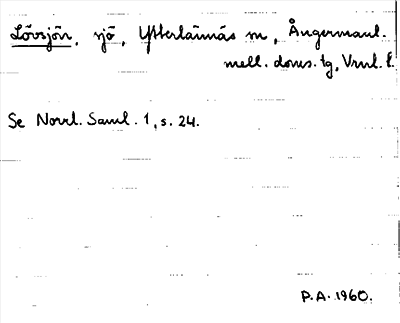 Lövsjön, sjö, Ytterlännäs sn, Ångermanl.
mell. doms. tg, Vrnl. l.
Se Norrl. Saml. 1, s. 24.
P.A. 1960.